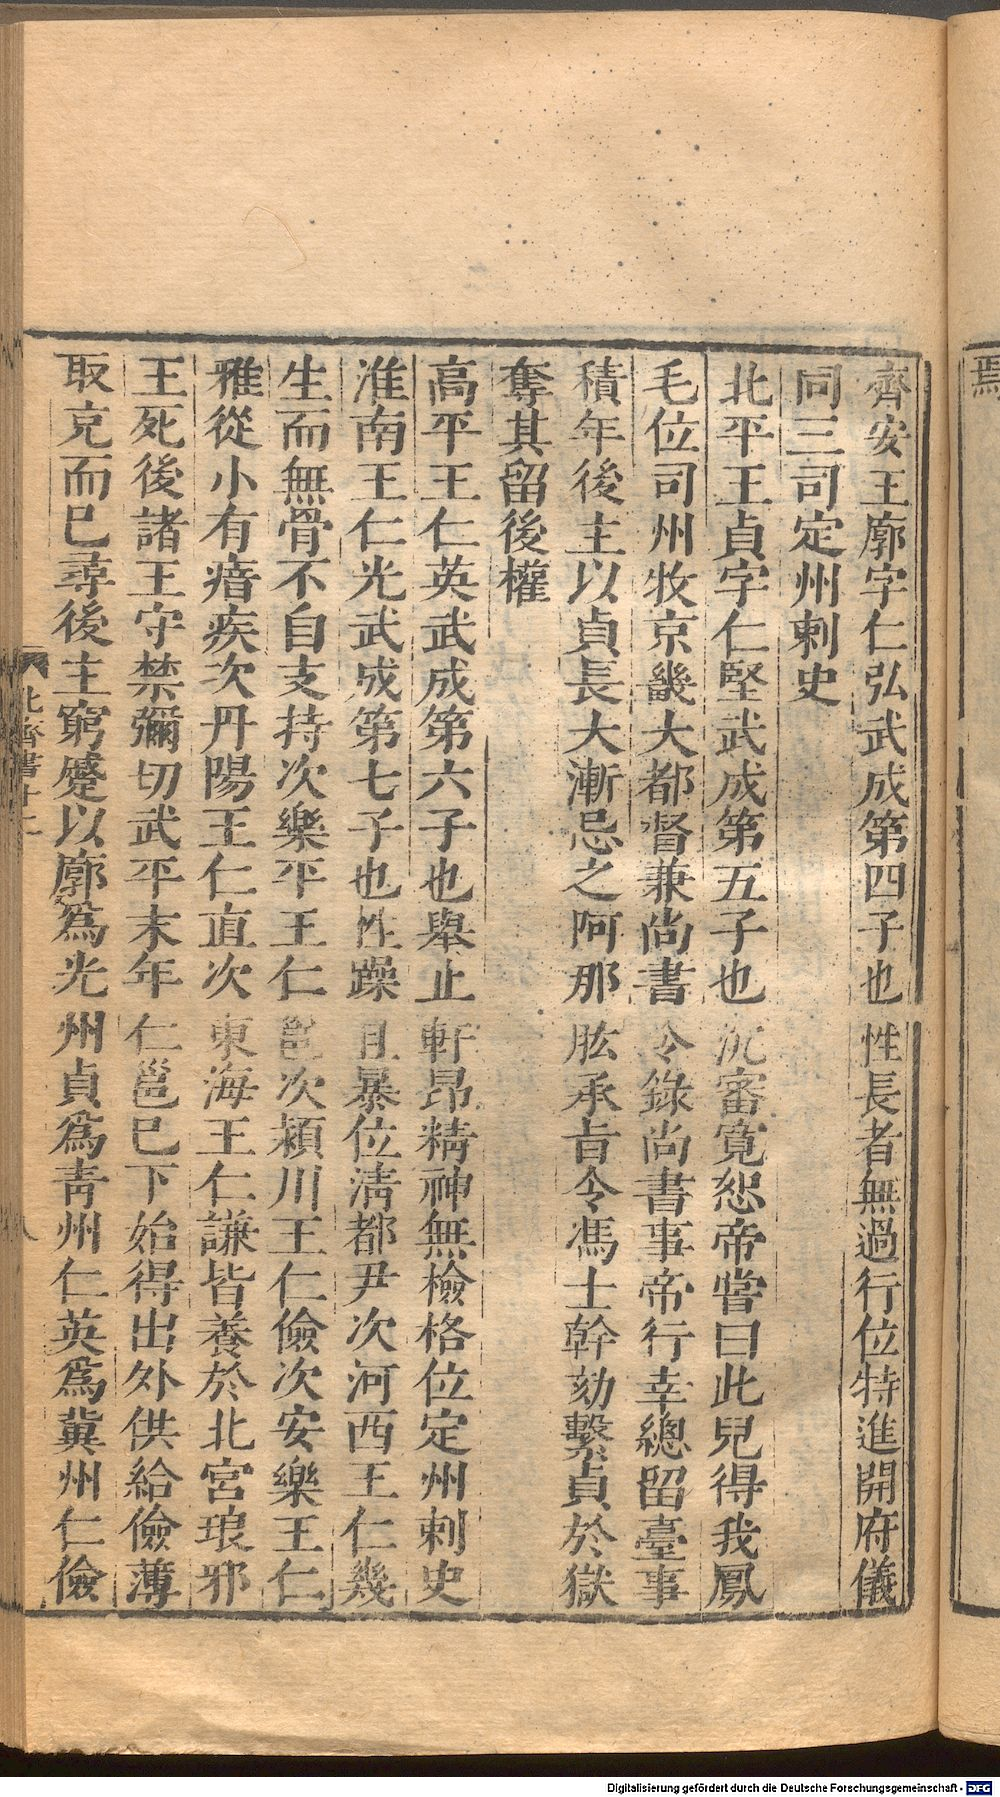 齊安王廓字仁弘武成第四子也性長者無過行位特進開府儀
同三司定州刺史
北平王貞字仁堅武成第五子也沉審寬恕帝嘗曰此兒得我鳳
毛位司州牧京畿大都督兼尚書令錄尚書事帝行幸總留臺事
積年後主以貞長大漸忌之阿那肱承旨令馮士幹劾繫貞於獄
奪其留後權
高平王仁英武成第六子也舉止軒昂精神無檢格位定州刺史
淮南王仁光武成第七子也性躁且暴位清都尹次河西王仁幾
生而無骨不自支持次樂平王仁邕次潁川王仁儉次安樂王仁
雅從小有瘖疾次丹陽王仁直次東海王仁謙皆養於北宮琅邪
王死後諸王守禁彌切武平末年仁邕巳下始得出外供給儉薄
取充而巳尋後主窮蹙以廓爲光州貞爲青州仁英爲冀州仁儉
北齊書十二
八
焉
Digitalisierung gefördert durch die Deutsche Forschungsgemeinschaft - DFG